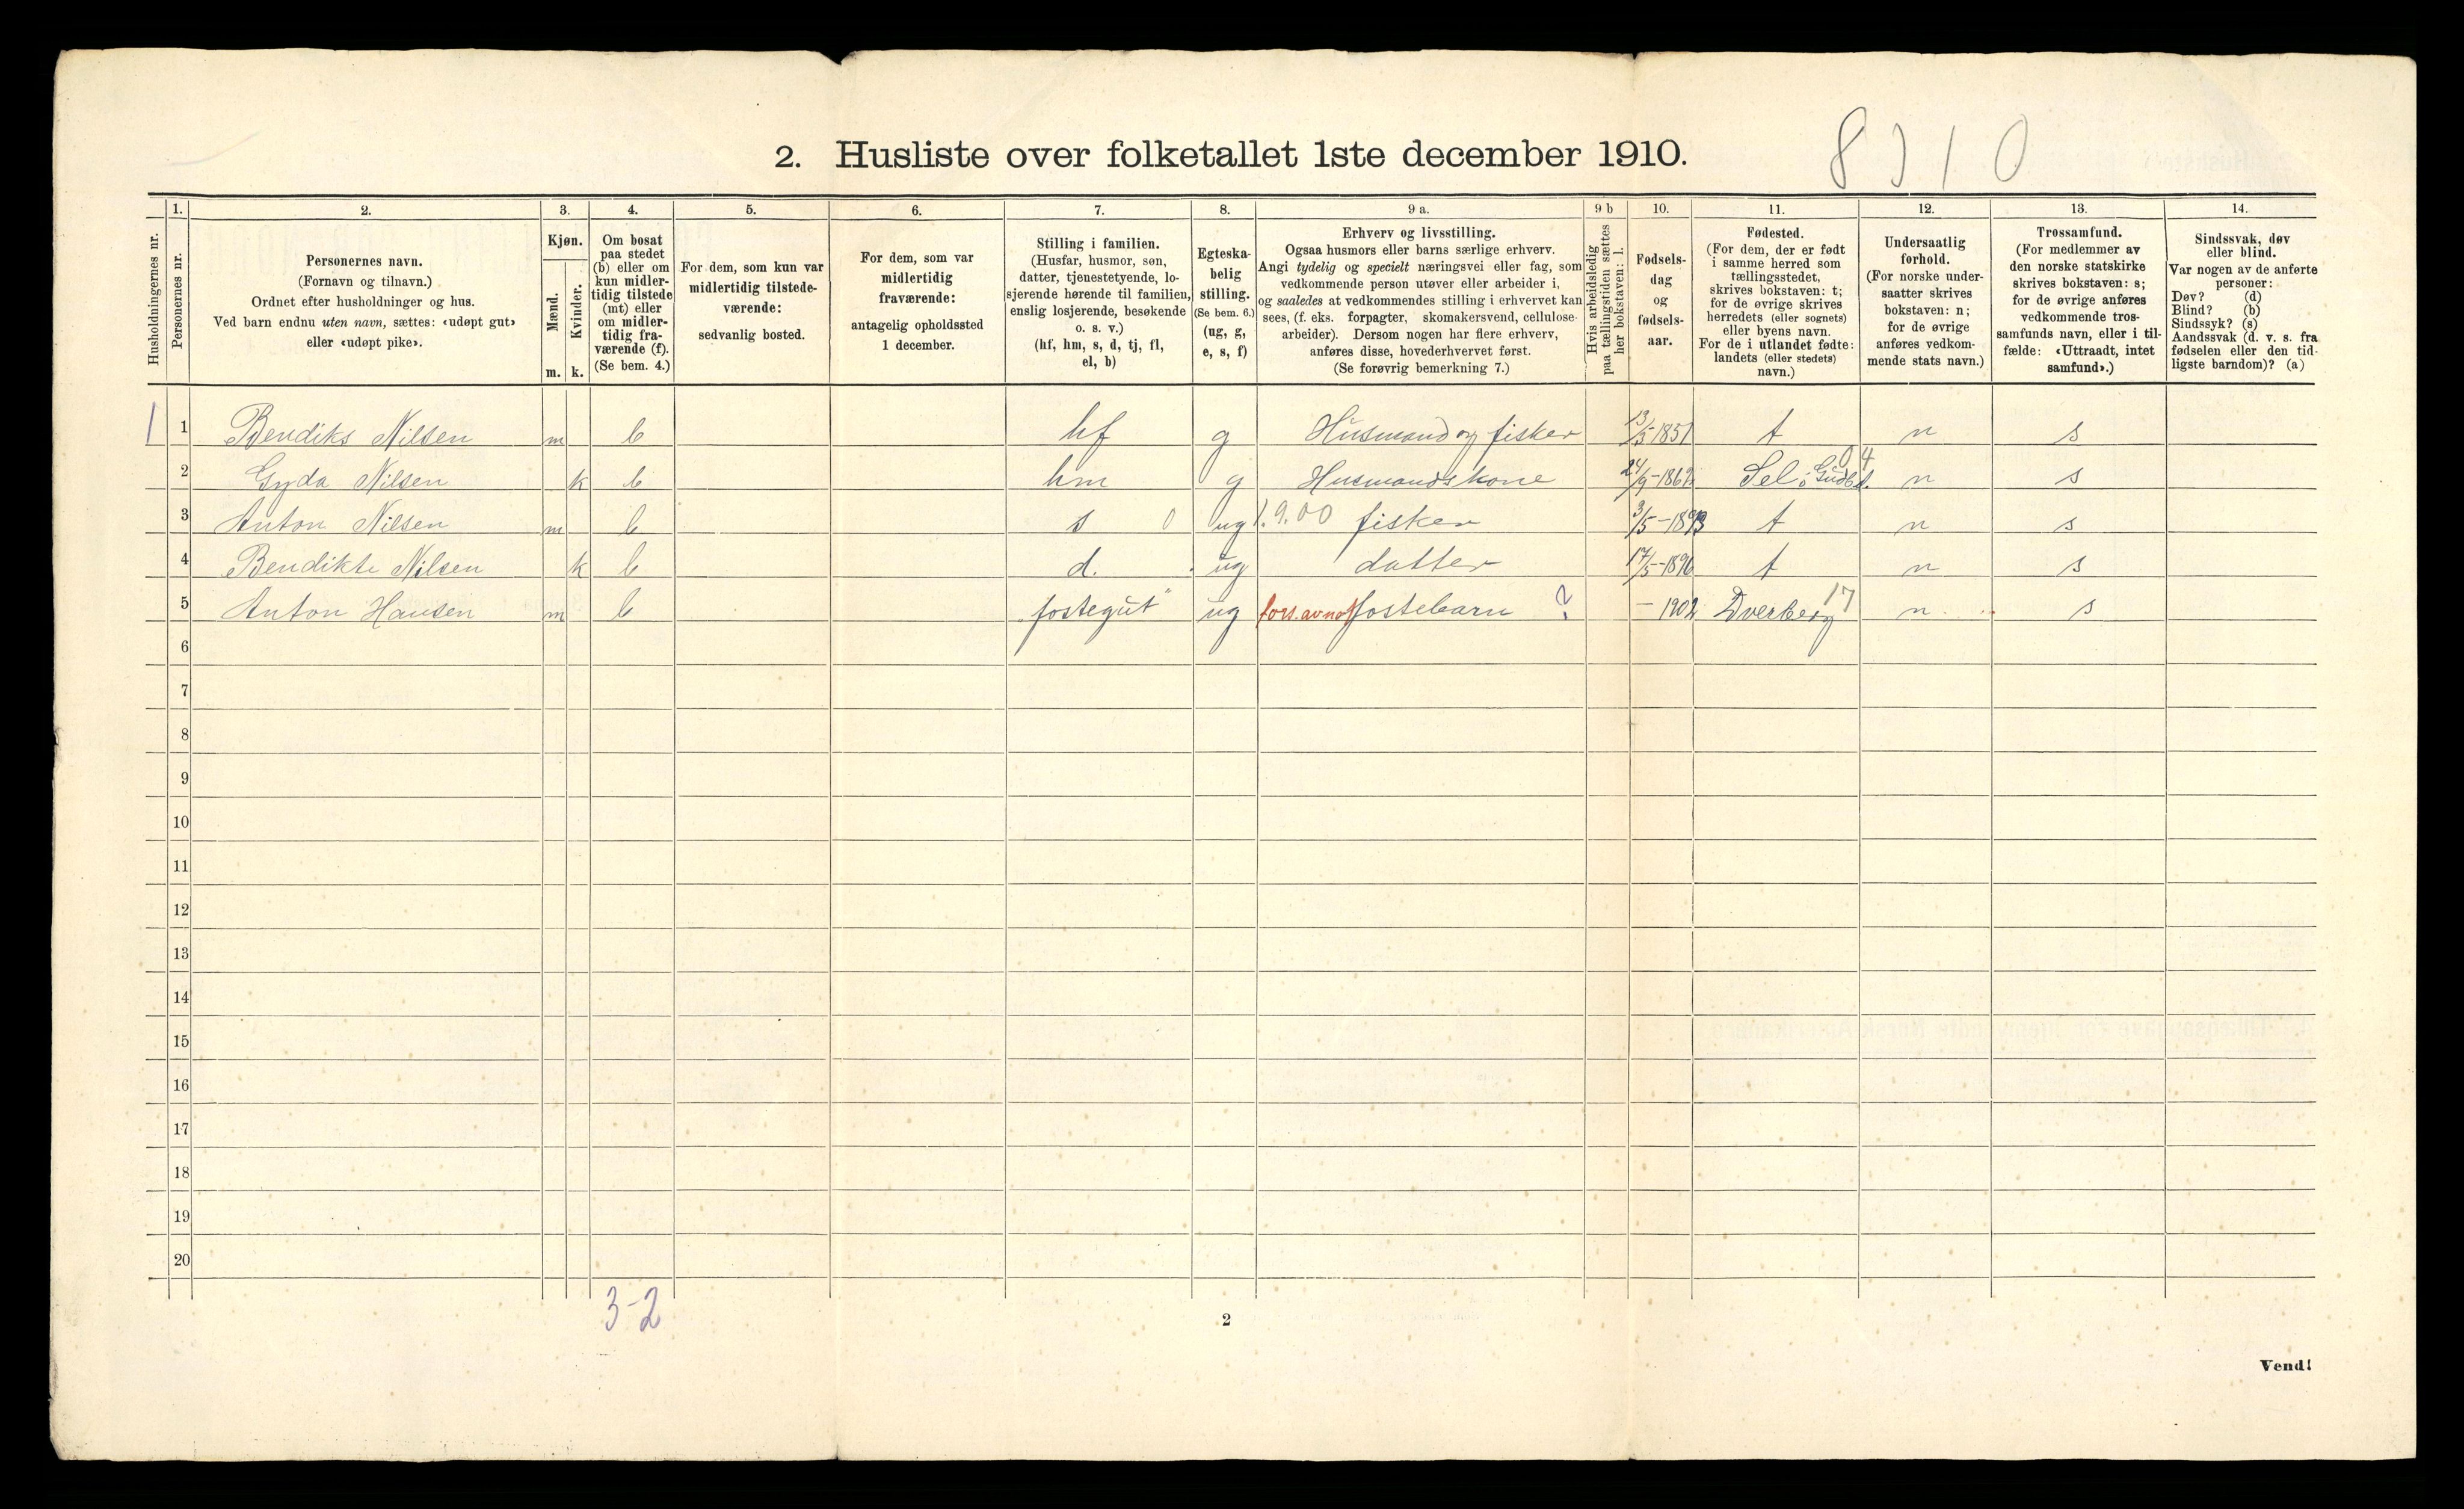 8310
2. Husliste over folketallet 1ste december 1910.
Husholdningernes nr.
1.
Personernes nr.
2.
Personernes navn.
(Fornavn og tilnavn.)
Ordnet efter husholdninger og hus.
Ved barn endnu uten navn, sættes: «udøpt gut»
eller «udøpt pike».
3.
Kjøn.
Mænd.
Kvinder.
m. k.
4.
Om bosat
paa stedet
(b) eller om
kun midler-
tidig tilstede
(mt) eller
om midler-
tidig fra-
værende (f).
(Se bem. 4.)
5.
For dem, som kun var
midlertidig tilstede-
værende:
sedvanlig bosted.
6.
For dem, som var
midlertidig
fraværende:
antagelig opholdssted
1 december.
7.
Stilling i familien.
(Husfar, husmor, søn,
datter, tjenestetyende, lo-
sjerende hørende til familien,
enslig losjerende, besøkende
o. s. v.)
(hf, hm, s, d, tj, fl,
el, b)
8.
Egteska-
belig
stilling.
(Se bem. 6.)
(ug, g,
e, s, f)
9 a.
Erhverv og livsstilling.
Ogsaa husmors eller barns særlige erhverv.
Angi tydelig og specielt næringsvei eller fag, som
vedkommende person utøver eller arbeider i,
og saaledes at vedkommendes stilling i erhvervet kan
sees, (f. eks. forpagter, skomakersvend, cellulose-
arbeider). Dersom nogen har flere erhverv,
anføres disse, hovederhvervet først.
(Se forøvrig bemerkning 7.)
9 b
Hvis arbeidsledig
paa tællingstiden sættes
her bokstaven: l.
10.
Fødsels-
dag
og
fødsels-
aar.
11.
Fødested.
(For dem, der er født
i samme herred som
tællingsstedet,
skrives bokstaven: t;
for de øvrige skrives
herredets (eller sognets)
eller byens navn.
For de i utlandet fødte:
landets (eller stedets)
navn.)
12.
Undersaatlig
forhold.
(For norske under-
saatter skrives
bokstaven: n;
for de øvrige
anføres vedkom-
mende stats navn.)
13.
Trossamfund.
(For medlemmer av
den norske statskirke
skrives bokstaven: s;
for de øvrige anføres
vedkommende tros-
samfunds navn, eller i til-
fælde: «Uttraadt, intet
samfund».)
14.
Sindssvak, døv
eller blind.
Var nogen av de anførte
personer:
Døv? (d)
Blind? (b)
Sindssyk? (s)
Aandssvak (d. v. s. fra
fødselen eller den tid-
ligste barndom)? (a)
1 1 Bendiks Nilsen m b hf g Husmand og fisker 13/5-1851 t n s
2 Gyda Nilsen k b hm g Husmandskone 24/9-1862 Sel i Gudbd. 04 n s
3 Anton Nilsen m b s 0 ug 1.9.00 fisker 3/5-1893 t n s
4 Bendikte Nilsen k b d. ug datter 17/5-1896 t n s
5 Anton Hansen m b "fostegut" ug fors. av no fostebarn ? -1902 Dverberg 17 n s
6
7
8
9
10
11
12
13
14
15
16
17
18
19
20
3-2
2
Vend!